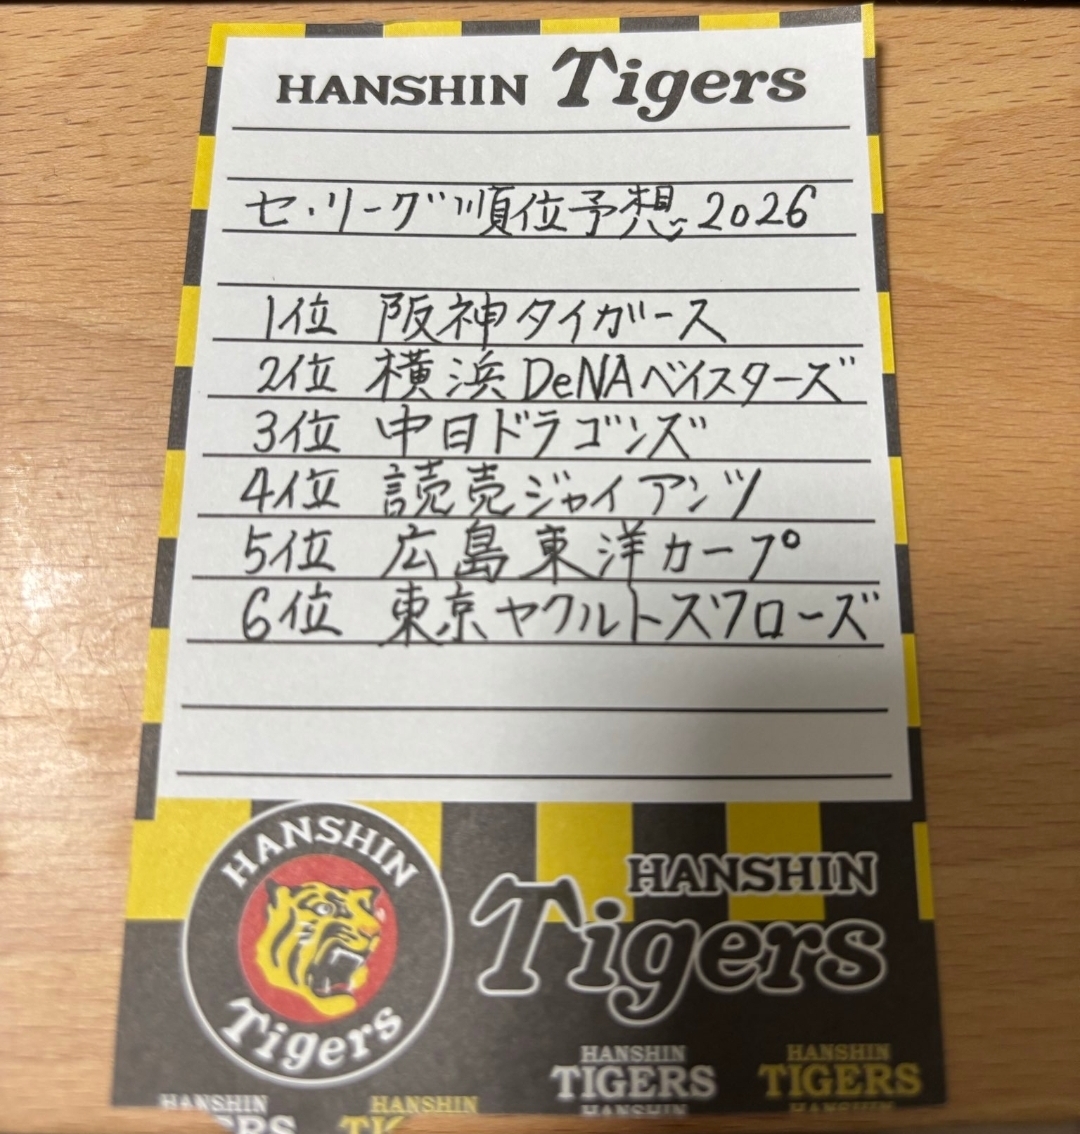 HANSHIN Tigers
セ・リーグ順位予想 2026
1位 阪神タイガース
2位 横浜DeNAベイスターズ
3位 中日ドラゴンズ
4位 読売ジャイアンツ
5位 広島東洋カープ
6位 東京ヤクルトスワローズ
HANSHIN
Tigers
HANSHIN
Tigers
HANSHIN
TIGERS
HANSHIN
TIGERS
HANSHIN
HANSHIN
HANSHIN
HANSHIN